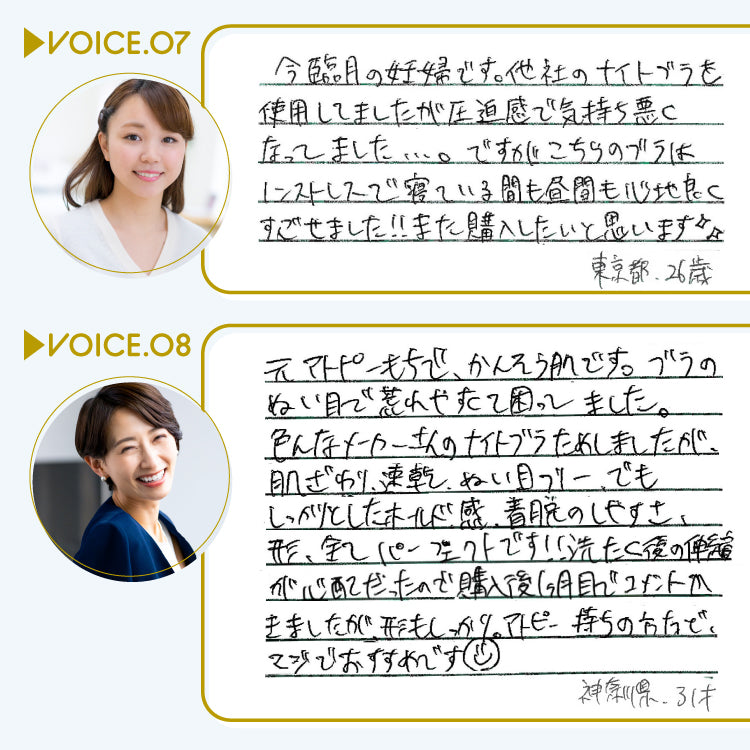 VOICE.07
今臨月の妊婦です。他社のナイトブラを
使用してましたが圧迫感で気持ち悪く
なってしました...。ですがこちらのブラは
ノンストレスで寝ている間も昼間も心地良く
すごせました!!また購入したいと思います♪♪
東京都、26歳
VOICE.08
元アトピーもちで、かんそう肌です。ブラの
ぬい目で荒れやすくて困ってました。
色んなメーカーさんのナイトブラためしましたが、
肌ざわり、速乾、ぬい目フリー、でも
しっかりとしたホールド感、着脱のしやすさ、
形、全てパーフェクトです!!洗たく後の伸縮
が心配だったので購入後1ヶ月目でコメントか
きましたが、形もしっかり。アトピー持ちの方たで、
マジでおすすめです
神奈川県、31才